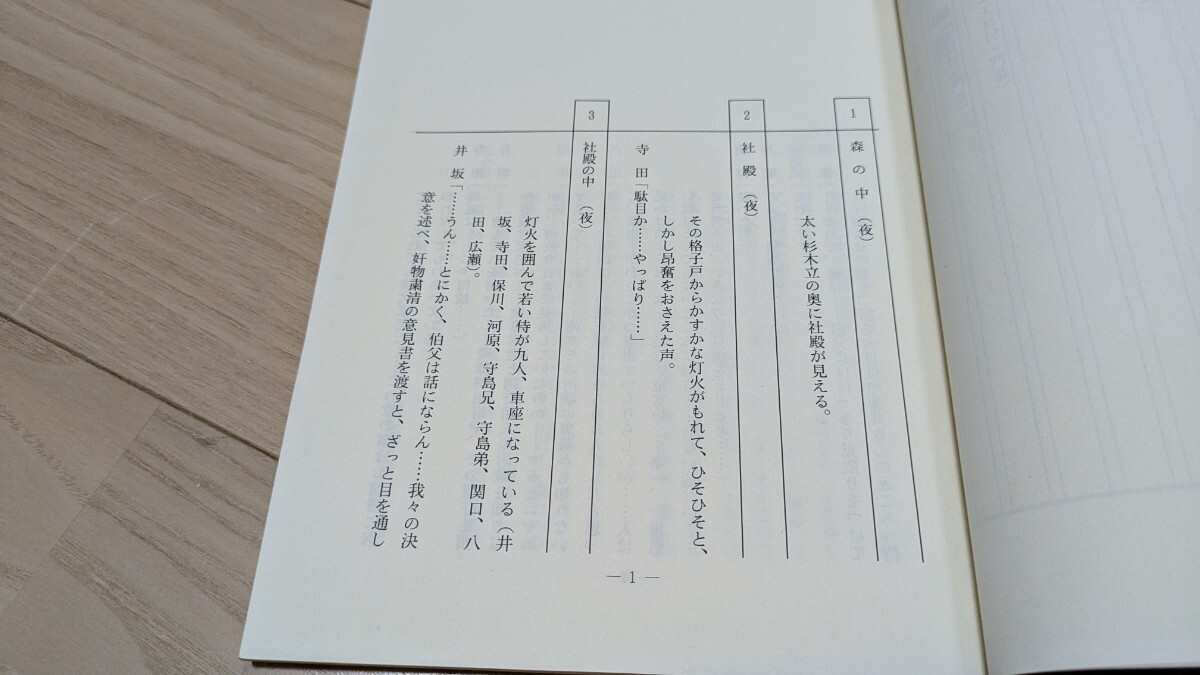 1 森の中（夜）
太い杉木立の奥に社殿が見える。
2 社殿（夜）
その格子戸からかすかな灯火がもれて、ひそひそと、
しかし昂奮をおさえた声。
寺田「駄目か……やっぱり……」
3 社殿の中（夜）
灯火を囲んで若い侍が九人、車座になっている（井
坂、寺田、保川、河原、守島兄、守島弟、関口、八
田、広瀬）。
井坂「……うん……とにかく、伯父は話にならん……我々の決
意を述べ、奸物粛清の意見書を渡すと、ざっと目を通し
— 1 —